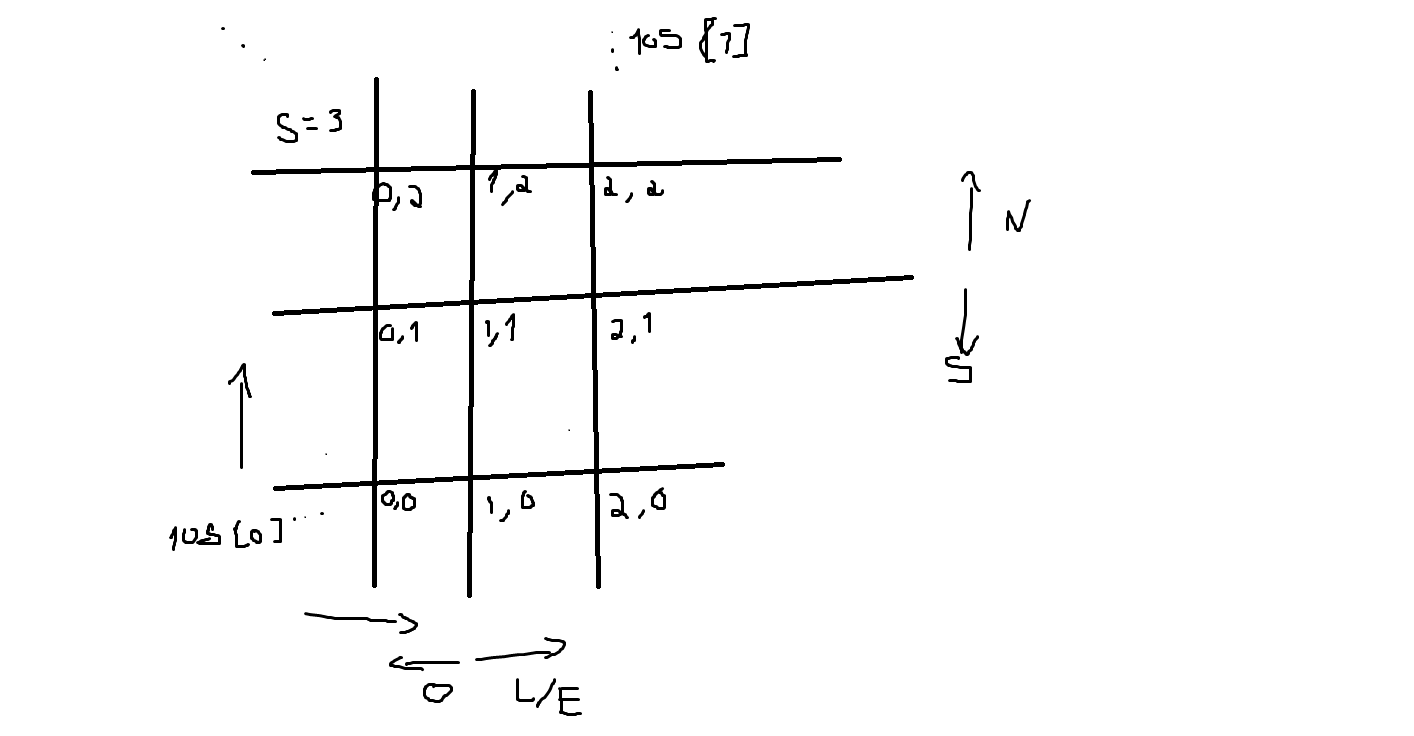 pos [1]
S=3
0,2 1,2 2,2
N
0,1 1,1 2,1
S
0,0 1,0 2,0
pos [0]
O L/E